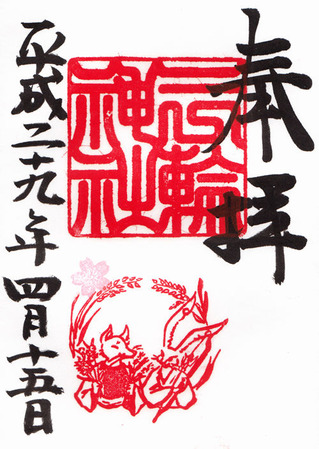 奉拝
三輪
神社
平成二十九年 四月十五日